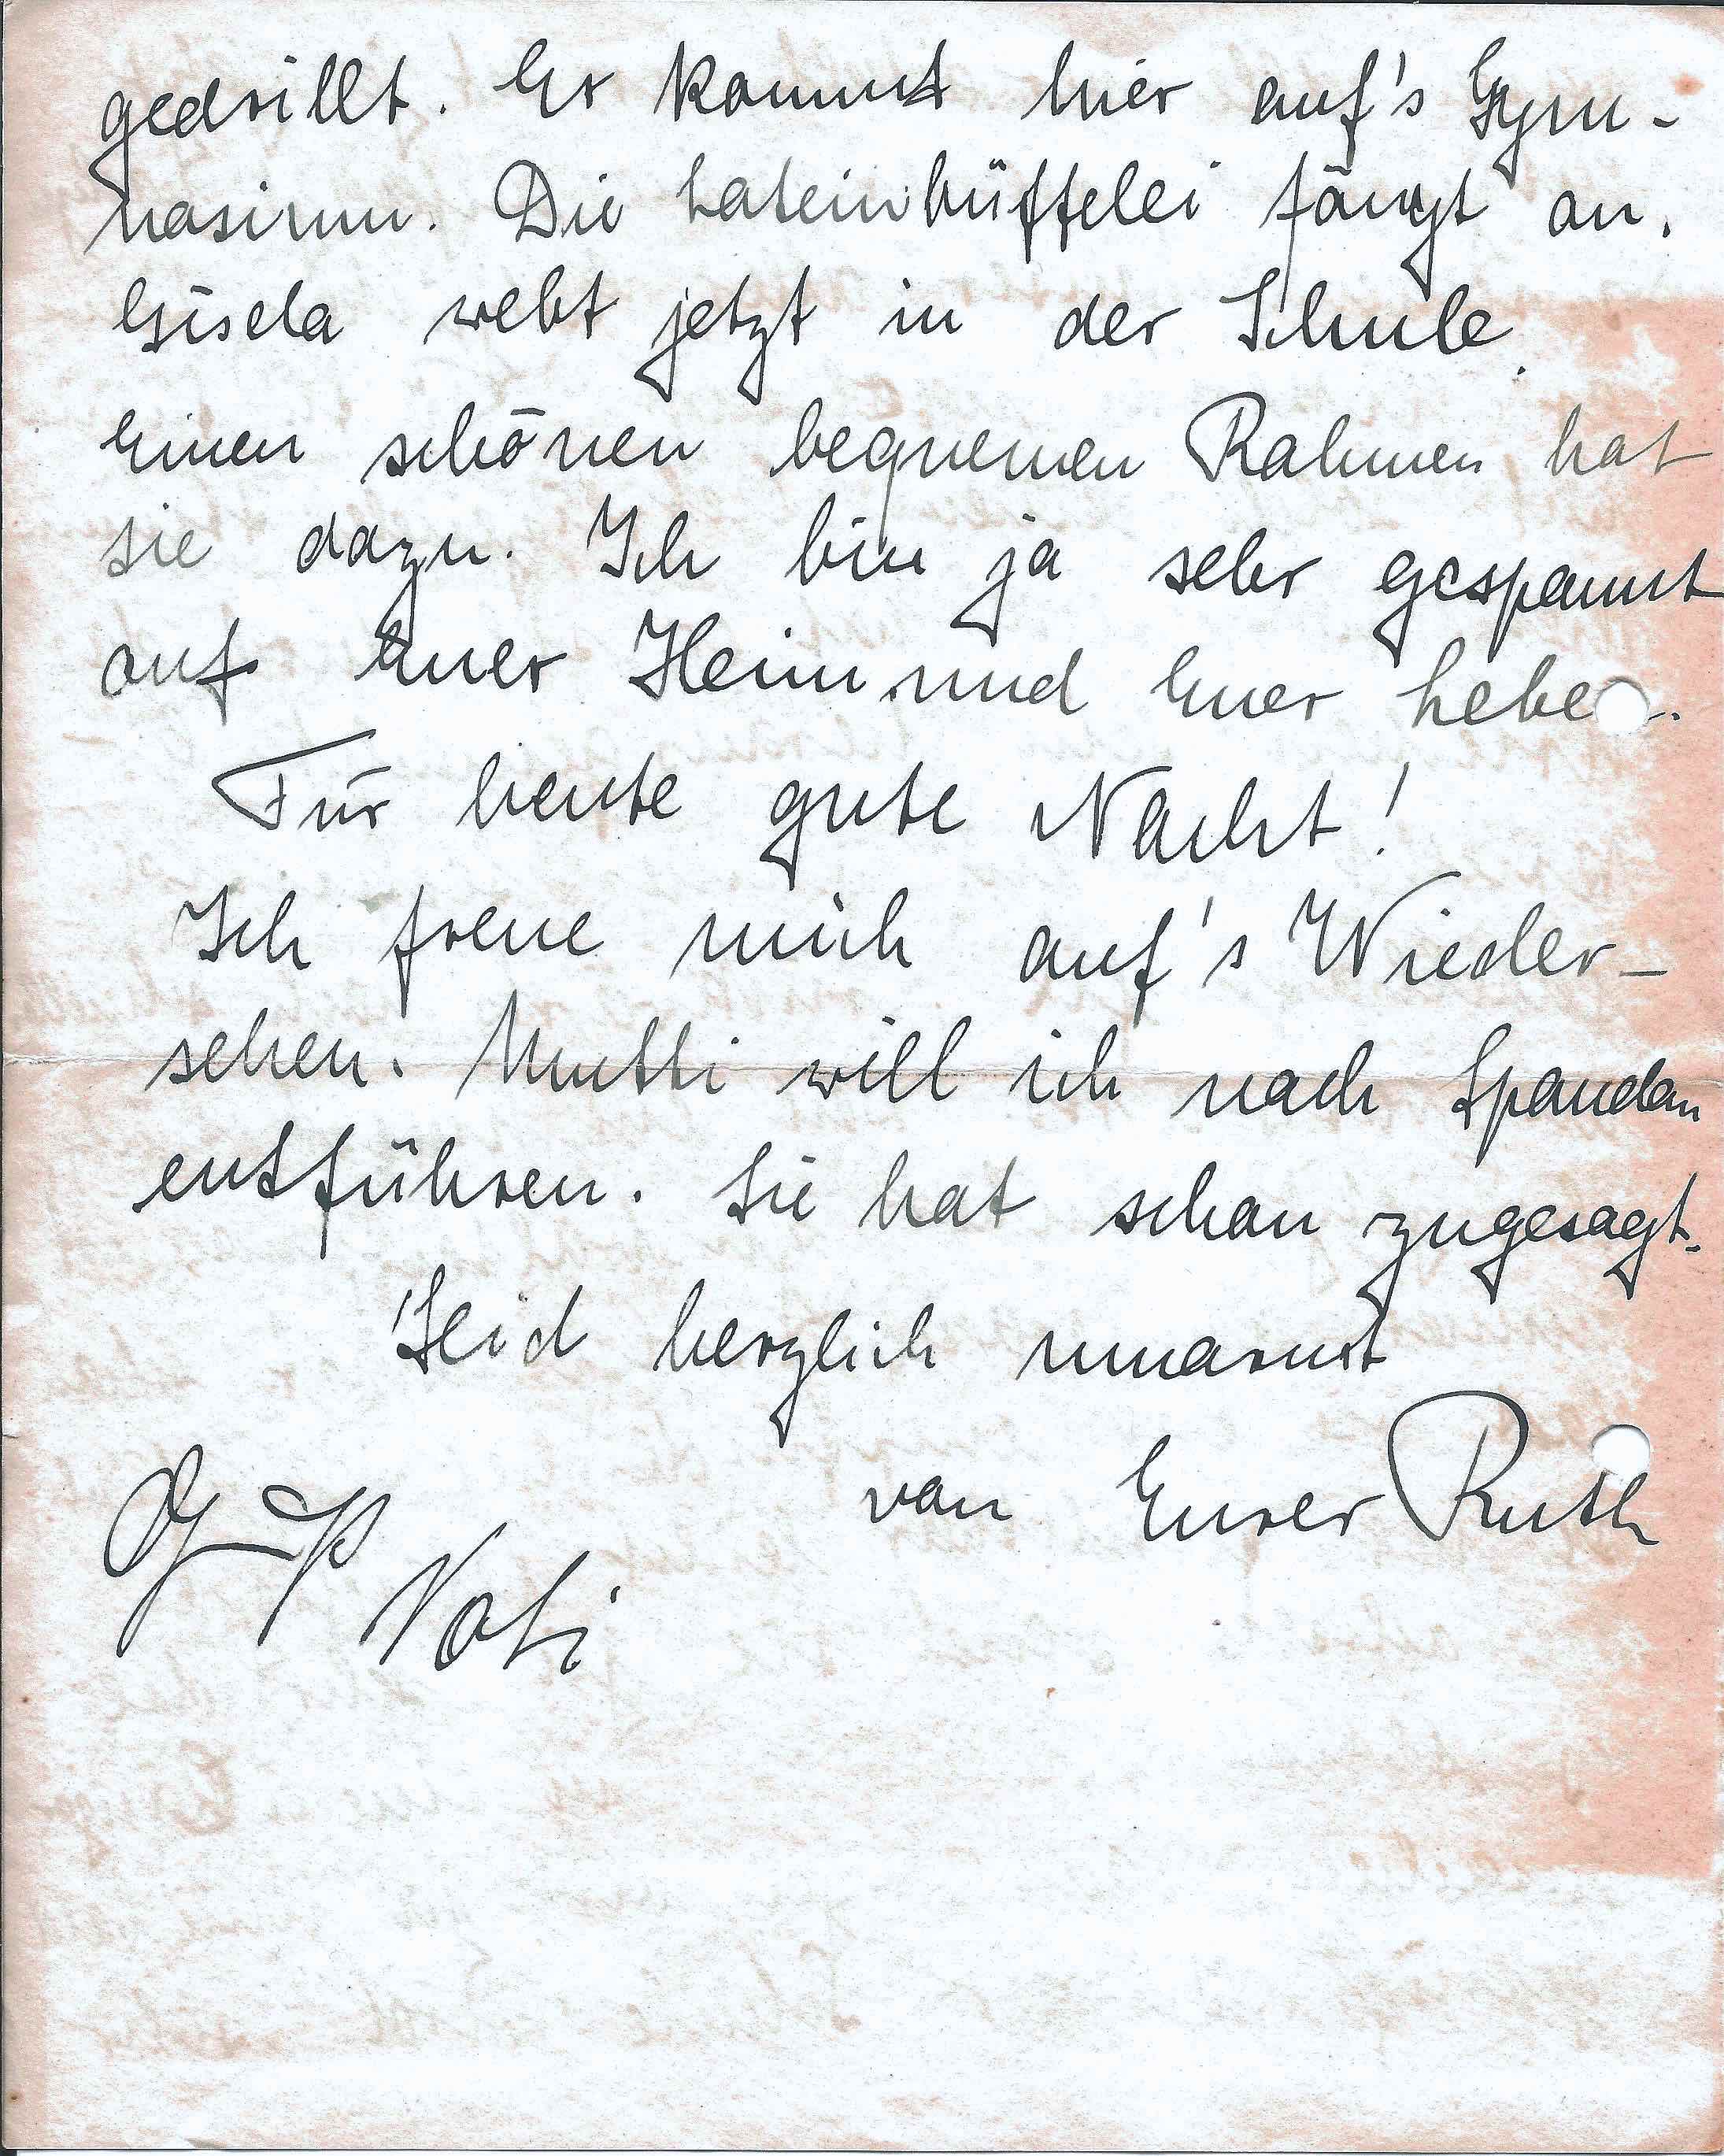 gedrillt. Er kommt hier auf's Gym-
nasium. Die Lateinbüffelei fängt an.
Gisela webt jetzt in der Schule.
Einen schönen bequemen Rahmen hat
sie dazu. Ich bin ja sehr gespannt
auf Euer Heim und Euer Leben.
Für heute gute Nacht!
Ich freue mich auf's Wieder-
sehen. Mutti will ich nach Spandau
entführen. Sie hat schon zugesagt.
Seid herzlich umarmt
von Eurer Ruth
Gruß Vati